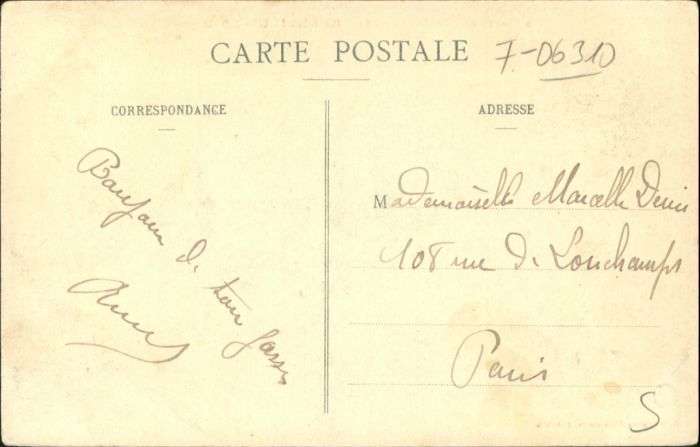 CARTE POSTALE
7-06310
CORRESPONDANCE
ADRESSE
Bonjour de ton
Mademoiselle Marcelle Denis
108 rue de Lonchamps
Paris
S